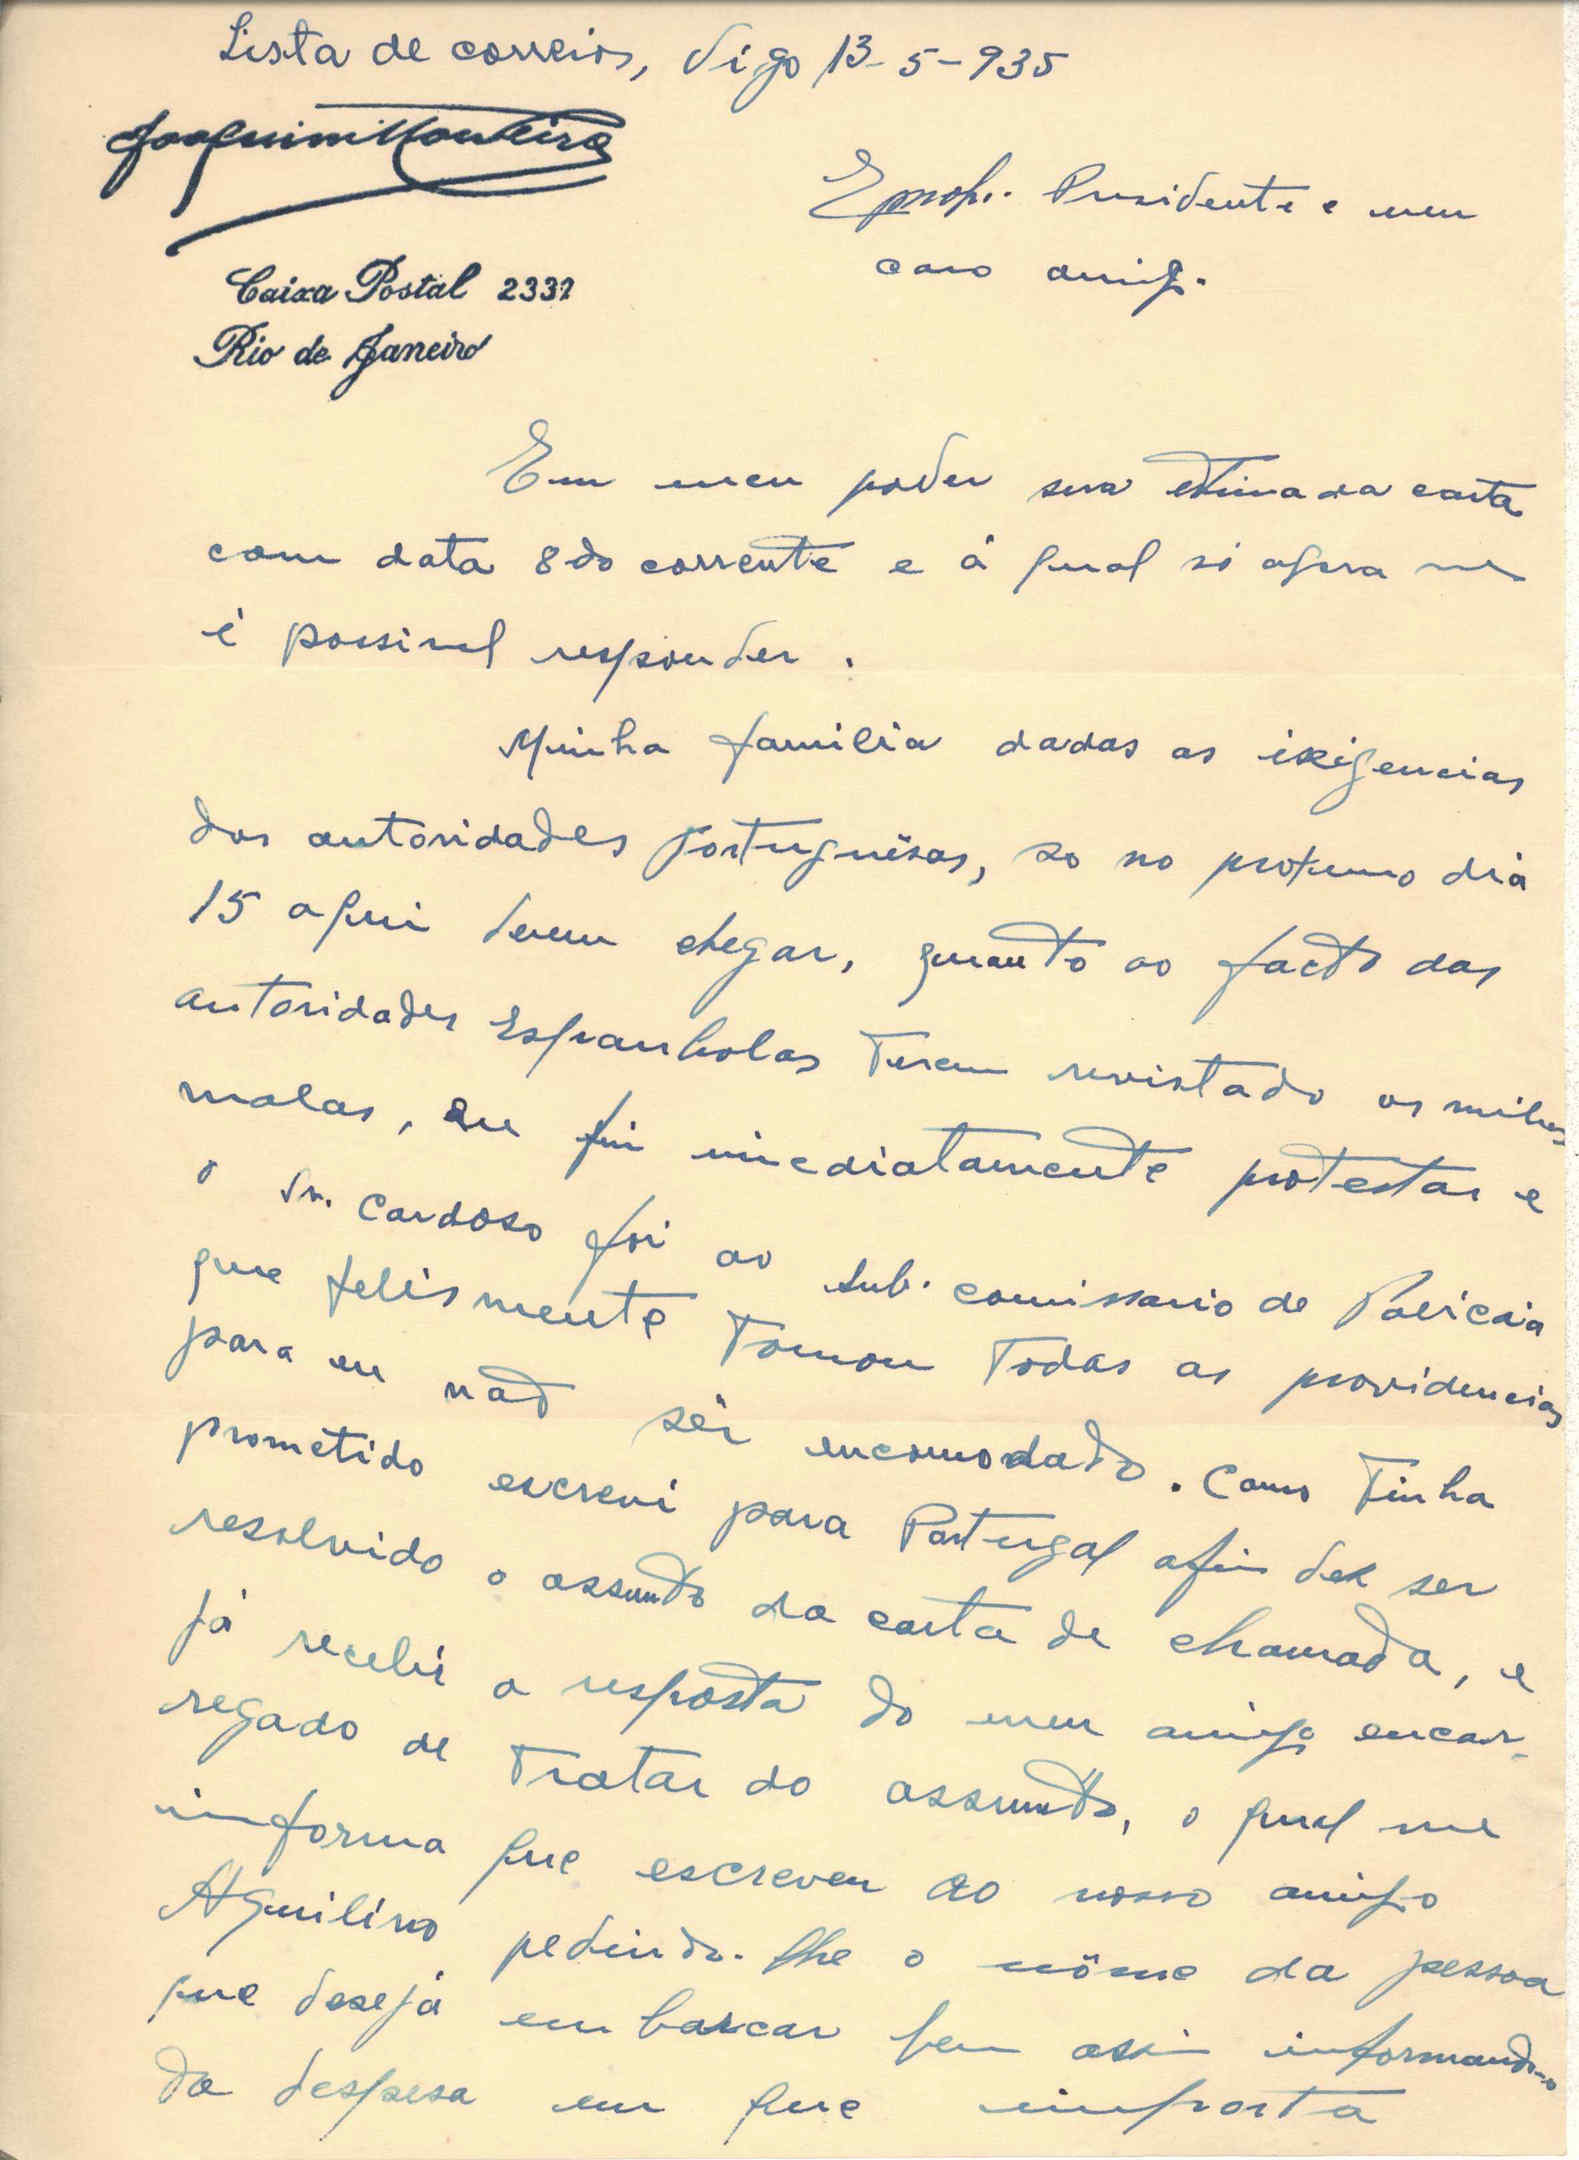 Lista de correios, Vigo 13-5-935
Joaquim Monteiro
Exmo. Presidente e meu
caro amigo.
Caixa Postal 2331
Rio de Janeiro
Em meu poder sua estimada carta
com data 8 do corrente e á qual só agora me
é possivel responder.
Minha familia dadas as exigencias
das autoridades portuguêsas, so no proximo dia
15 aqui devem chegar, quanto ao facto das
autoridades Espanholas terem revistado as minhas
malas, eu fui imediatamente protestar e
o Dr. Cardoso foi ao sub-comissario de Policia
que felismente tomou todas as providencias
para eu não sêr encomodado. Como tinha
prometido escrevi para Portugal afim de ser
resolvido o assunto da carta de chamada, e
já recebi a resposta do meu amigo encar-
regado de tratar do assunto, o qual me
informa que escreveu ao nosso amigo
Aquilino pedindo-lhe o nôme da pessoa
que desejá embarcar bem assim informando-o
da despesa em que importa